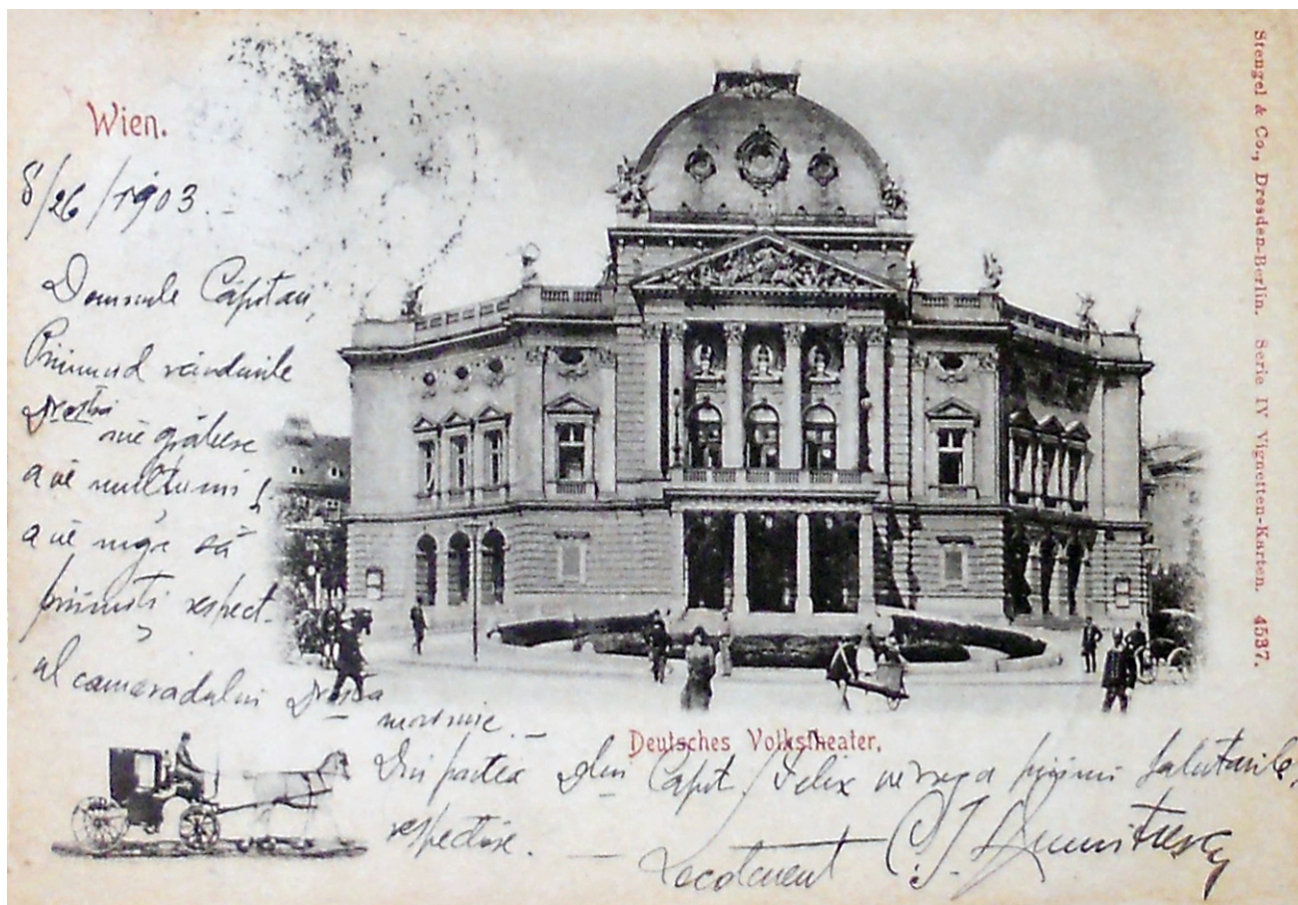 Wien.
8/26/1903.
Domnule Capitan,
Primind rândurile
Dvostră mĕ grăbesc
a vĕ mulțumi și
a vĕ ruga să
primiți respect.
al camaradului Dvostra
Din partea dlui Capit. Felix vĕ rog a primi salutările
respective.
Locotenent C. I. Dumitrescu
Deutsches Volkstheater.
Stengel & Co., Dresden-Berlin. Serie IV Vignetten-Karten. 4537.